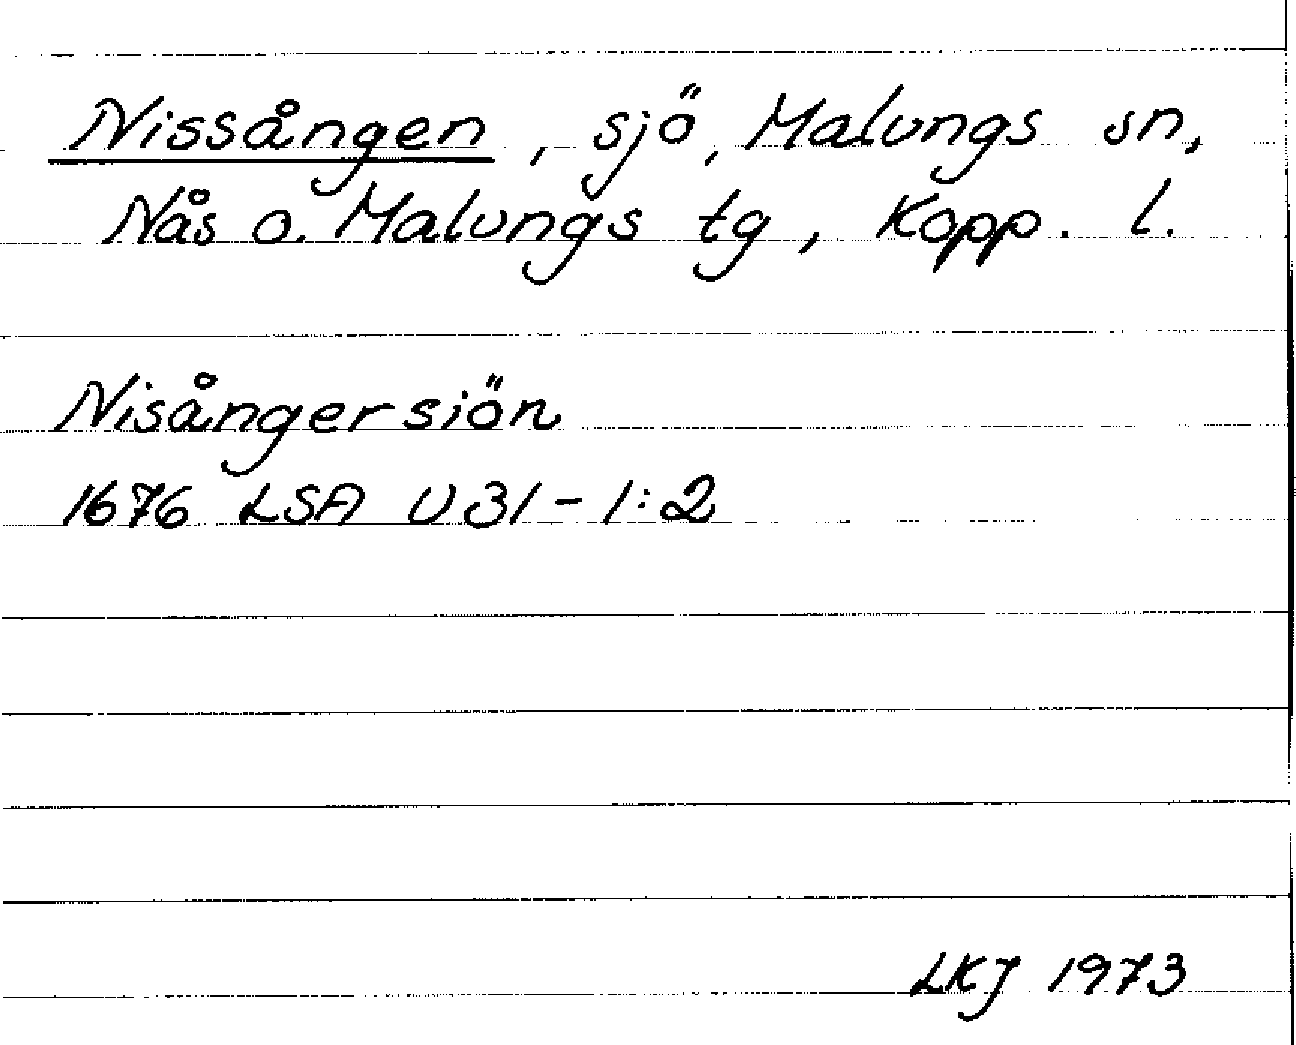 Nissången, sjö, Malungs sn,
Nås o. Malungs tg, Kopp. l.
Nisångersiön
1676 LSA U31-1:2
LKJ 1973